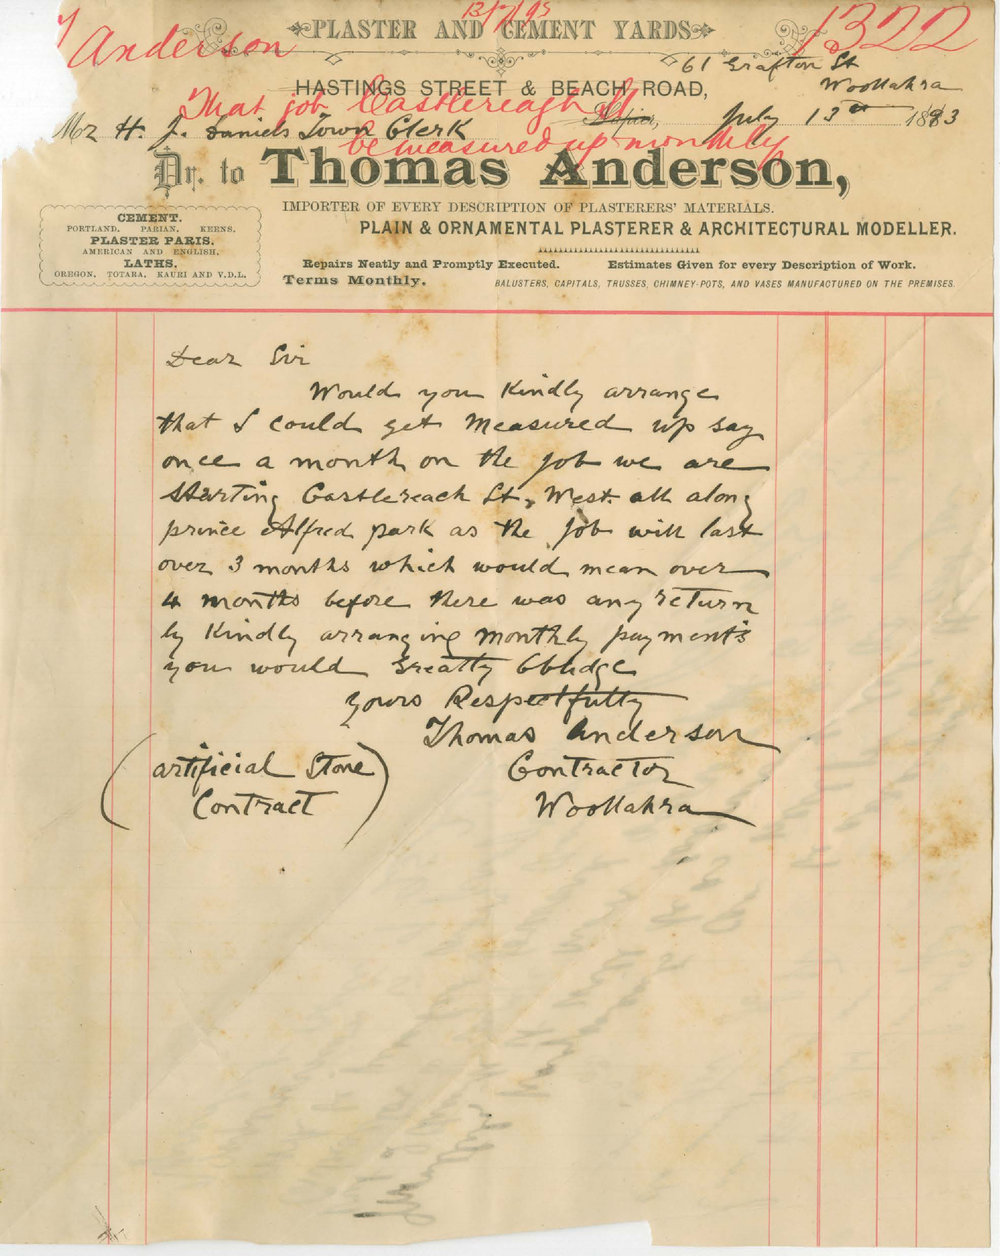 13/7/93
PLASTER AND CEMENT YARDS
1322
Anderson
61 Grafton St
HASTINGS STREET & BEACH ROAD,
Woollahra
That job Castlereagh St
July 13th 1893
Mr H. J. Daniels Town Clerk
be measured up monthly
Dr. to Thomas Anderson,
IMPORTER OF EVERY DESCRIPTION OF PLASTERERS' MATERIALS.
PLAIN & ORNAMENTAL PLASTERER & ARCHITECTURAL MODELLER.
CEMENT.
PORTLAND. PARIAN. KEENS.
PLASTER PARIS.
AMERICAN AND ENGLISH.
LATHS.
OREGON, TOTARA, KAURI AND V.D.L.
Repairs Neatly and Promptly Executed. Estimates Given for every Description of Work.
Terms Monthly. BALUSTERS, CAPITALS, TRUSSES, CHIMNEY-POTS, AND VASES MANUFACTURED ON THE PREMISES.
Dear Sir
Would you Kindly arrange
that I could get Measured up say
once a month on the job we are
starting Castlereach St, West all along
prince Alfred park as the Job will last
over 3 months which would mean over
4 months before there was any return
by Kindly arranging monthly payments
you would Greatly Obledge
Yours Respectfully
Thomas Anderson
(artificial Stone Contractor
Contract) Woollahra